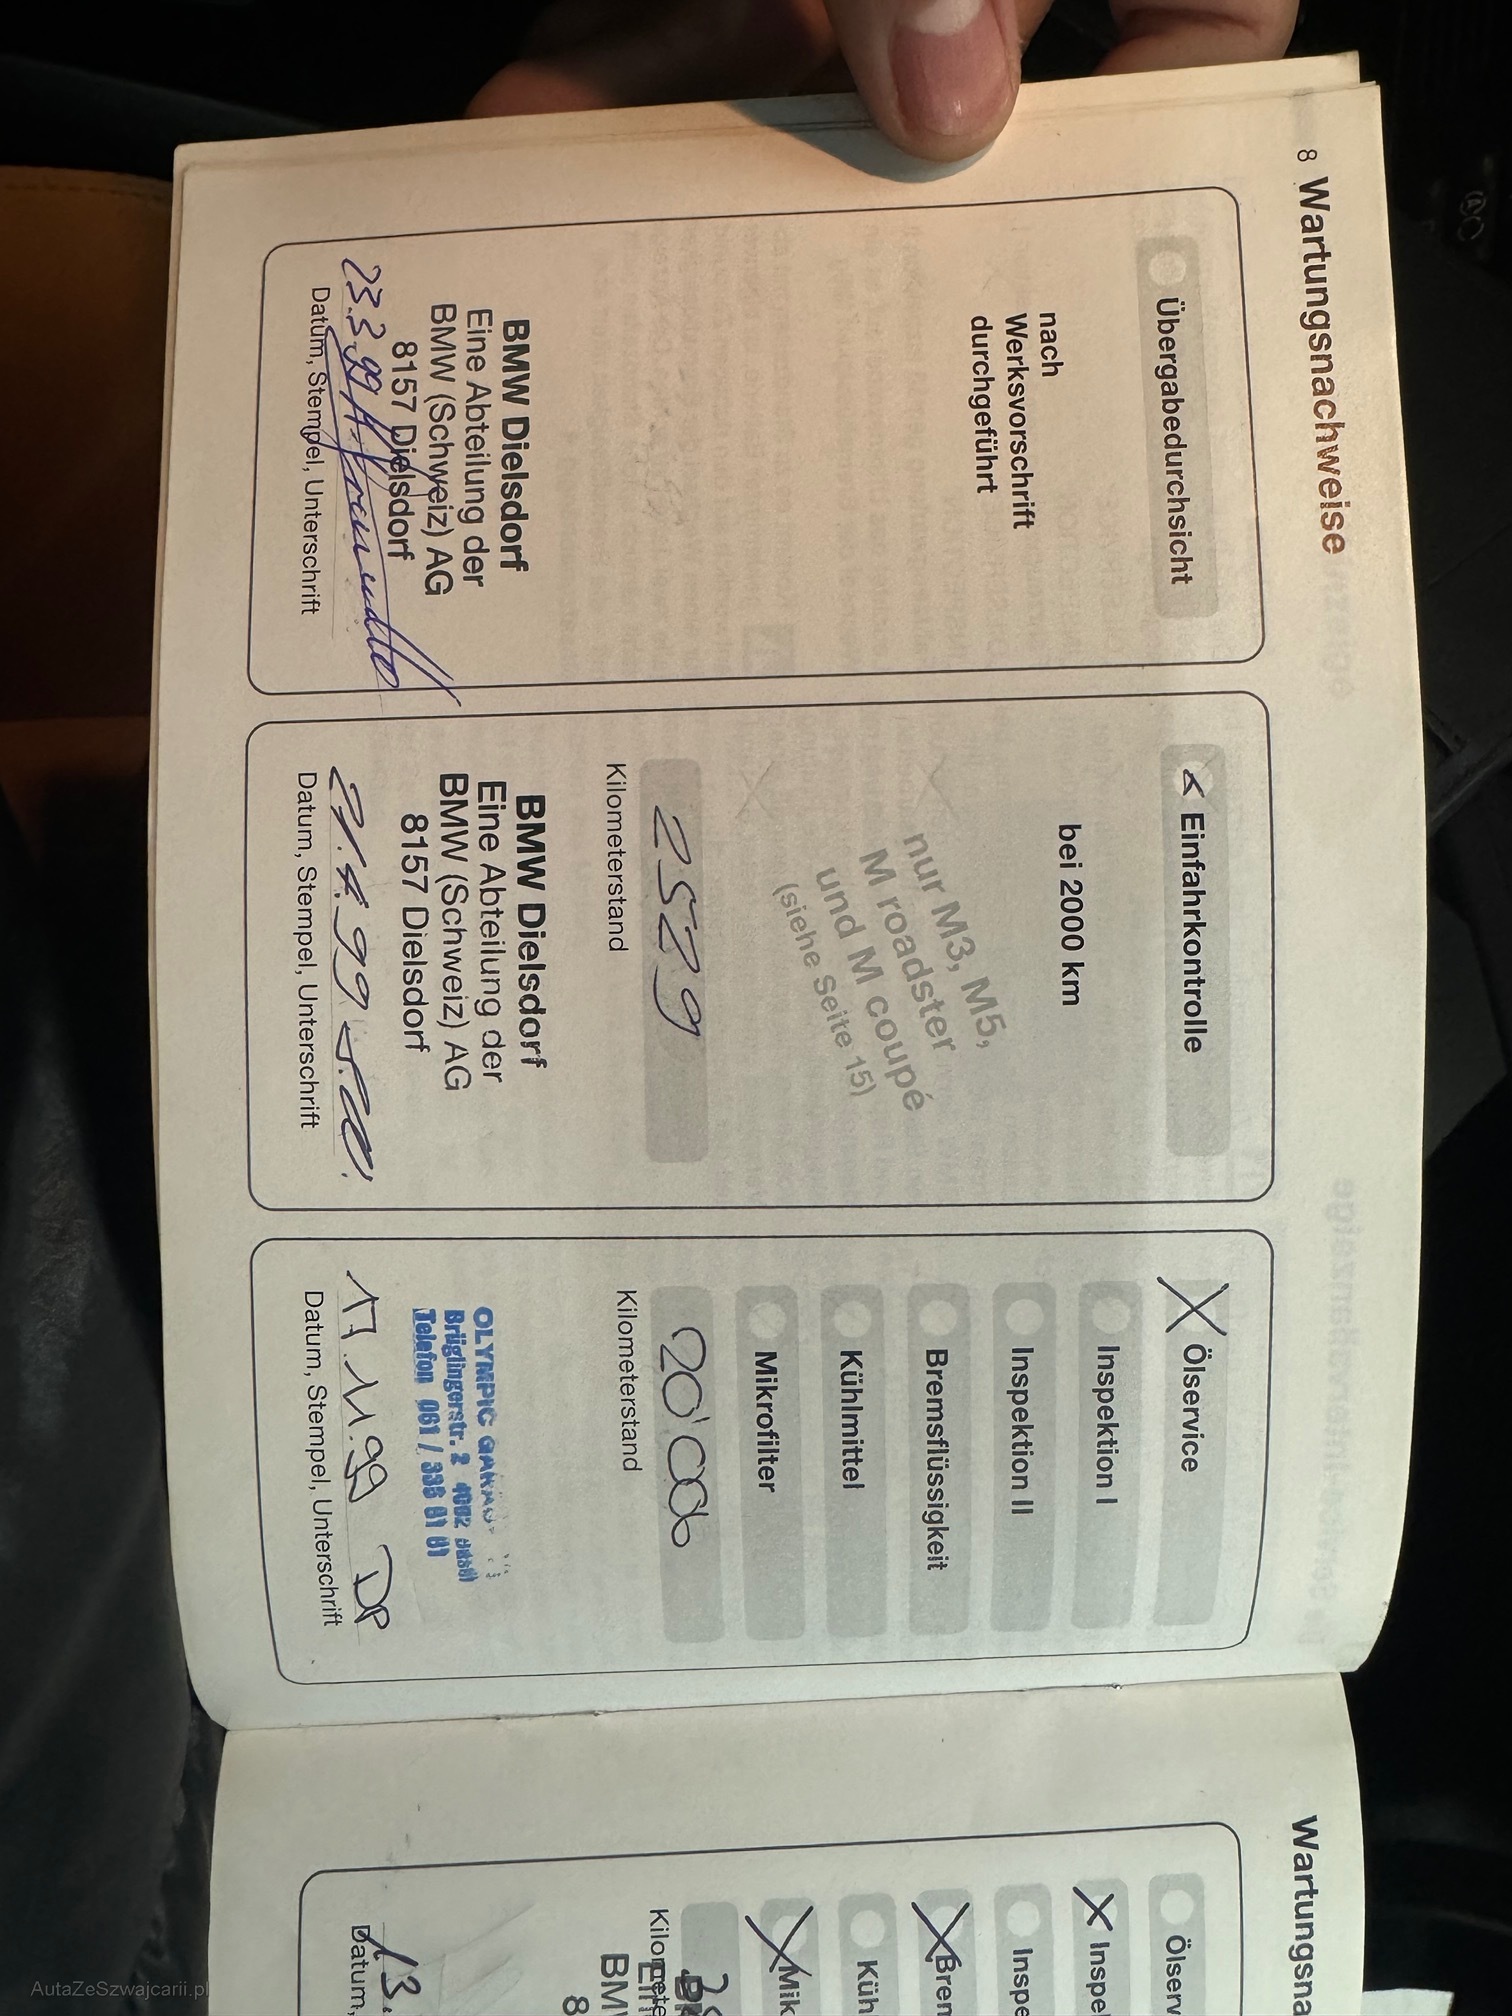 8 Wartungsnachweise
Übergabedurchsicht
nach
Werksvorschrift
durchgeführt
BMW Dielsdorf
Eine Abteilung der
BMW (Schweiz) AG
8157 Dielsdorf
23.3.99
Datum, Stempel, Unterschrift
Einfahrkontrolle
bei 2000 km
nur M3, M5,
M roadster
und M coupé
(siehe Seite 15)
2529
Kilometerstand
BMW Dielsdorf
Eine Abteilung der
BMW (Schweiz) AG
8157 Dielsdorf
21.4.99
Datum, Stempel, Unterschrift
X Ölservice
Inspektion I
Inspektion II
Bremsflüssigkeit
Kühlmittel
Mikrofilter
20'000
Kilometerstand
OLYMPIC
Brüglingerstr. 2 4002 Basel
Telefon 061 / 333 61 61
17.11.99 DP
Datum, Stempel, Unterschrift
Wartungsna
Ölserv
X Inspe
Inspe
X Brem
Küh
X Mik
Kilomete
BMW
8
13.
Datum,
AutaZeSzwajcarii.pl